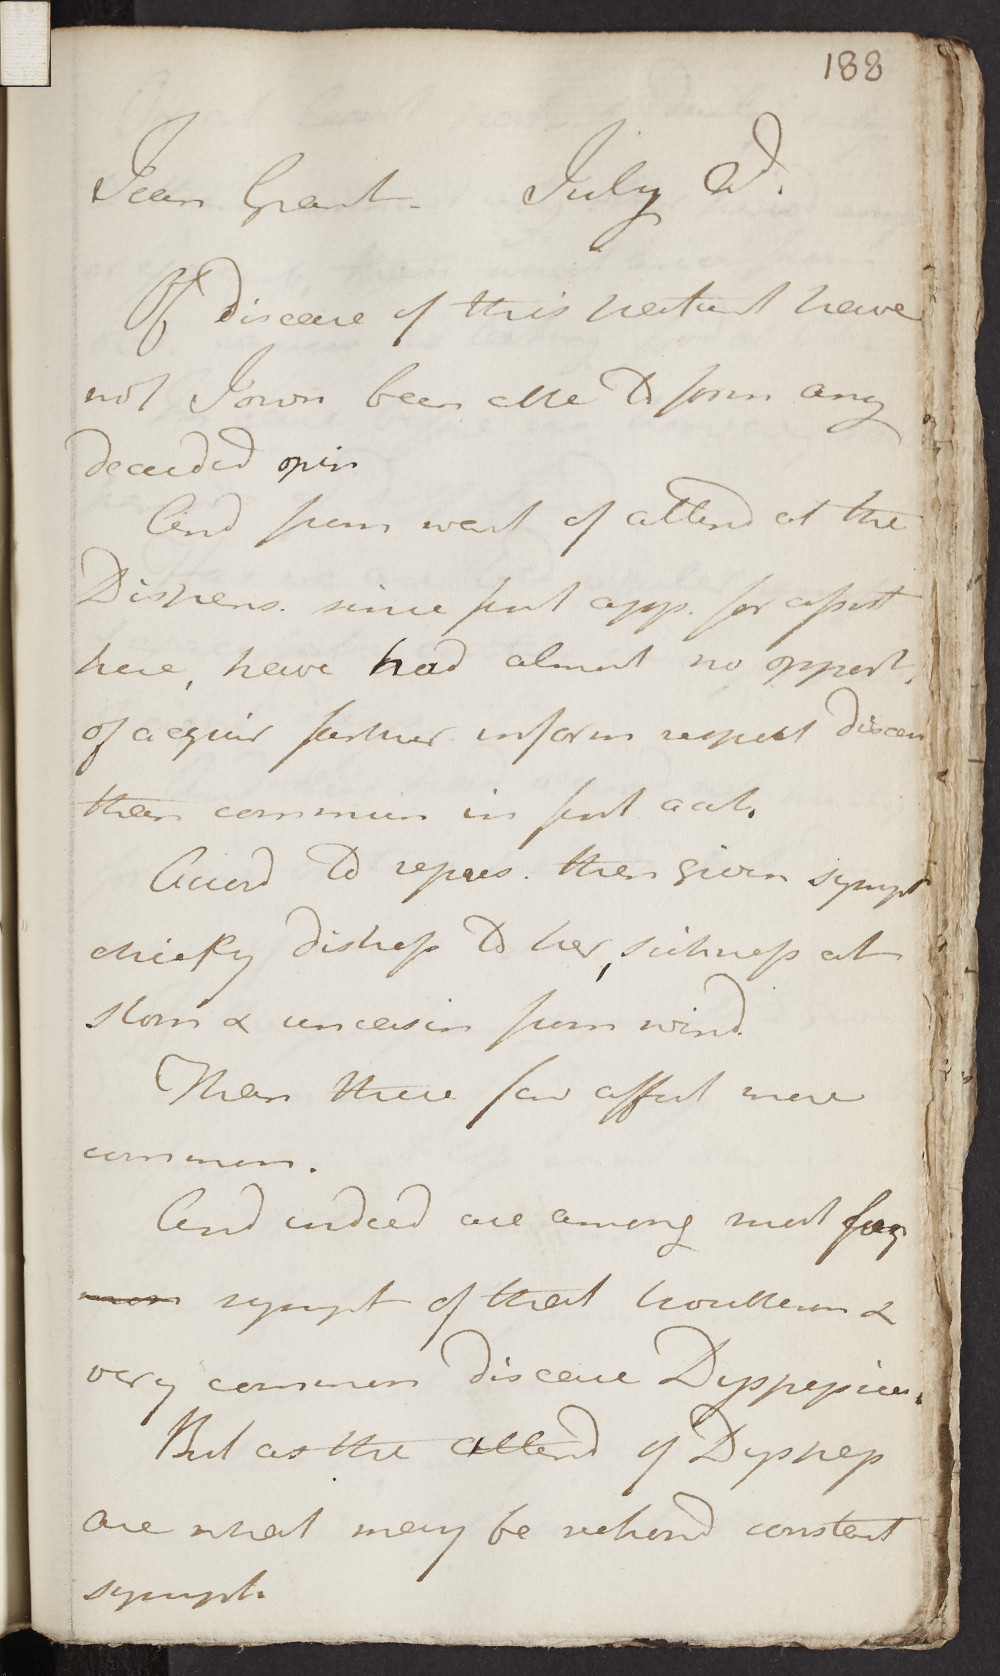 188
Jean Grant. July 2d.
Of disease of this patient have
not I own been able to form any
decided opin
And from want of attend at the
Dispens. since first app. for assist
here, have had almost no opport.
of acquir farther inform respect diseas
than commun in first acct.
Accord to repres. then given sympt
chiefly distress to her, sickness at
stom & uneasin from wind.
Than these few affect more
common.
And indeed are among most freq
sympt of that troublesom &
very common disease Dyspepsia.
But as the attend of Dyspep
are what may be reckond constant
sympt.